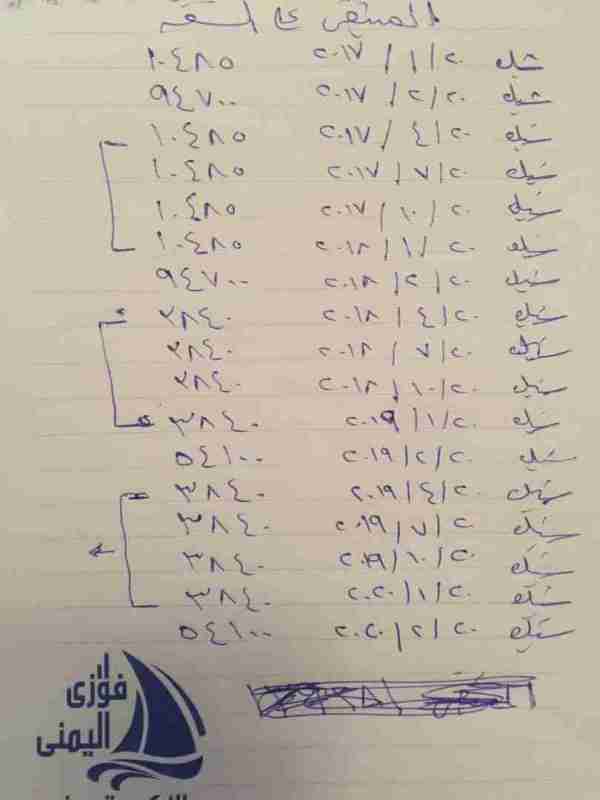 المتبقى على الشقة
شيك ٢٠١٧/١/٢٠ ١٠٤٨٥
شيك ٢٠١٧/٢/٢٠ ٩٤٧٠٠
شيك ٢٠١٧/٤/٢٠ ١٠٤٨٥
شيك ٢٠١٧/٧/٢٠ ١٠٤٨٥
شيك ٢٠١٧/١٠/٢٠ ١٠٤٨٥
شيك ٢٠١٨/١/٢٠ ١٠٤٨٥
شيك ٢٠١٨/٢/٢٠ ٩٤٧٠٠
شيك ٢٠١٨/٤/٢٠ ٢٨٤٠
شيك ٢٠١٨/٧/٢٠ ٢٨٤٠
شيك ٢٠١٨/١٠/٢٠ ٢٨٤٠
شيك ٢٠١٩/١/٢٠ ٣٨٤٠
شيك ٢٠١٩/٢/٢٠ ٥٤١٠٠
شيك ٢٠١٩/٤/٢٠ ٣٨٤٠
شيك ٢٠١٩/٧/٢٠ ٣٨٤٠
شيك ٢٠١٩/١٠/٢٠ ٣٨٤٠
شيك ٢٠٢٠/١/٢٠ ٣٨٤٠
شيك ٢٠٢٠/٢/٢٠ ٥٤١٠٠
فوزى
اليمنى